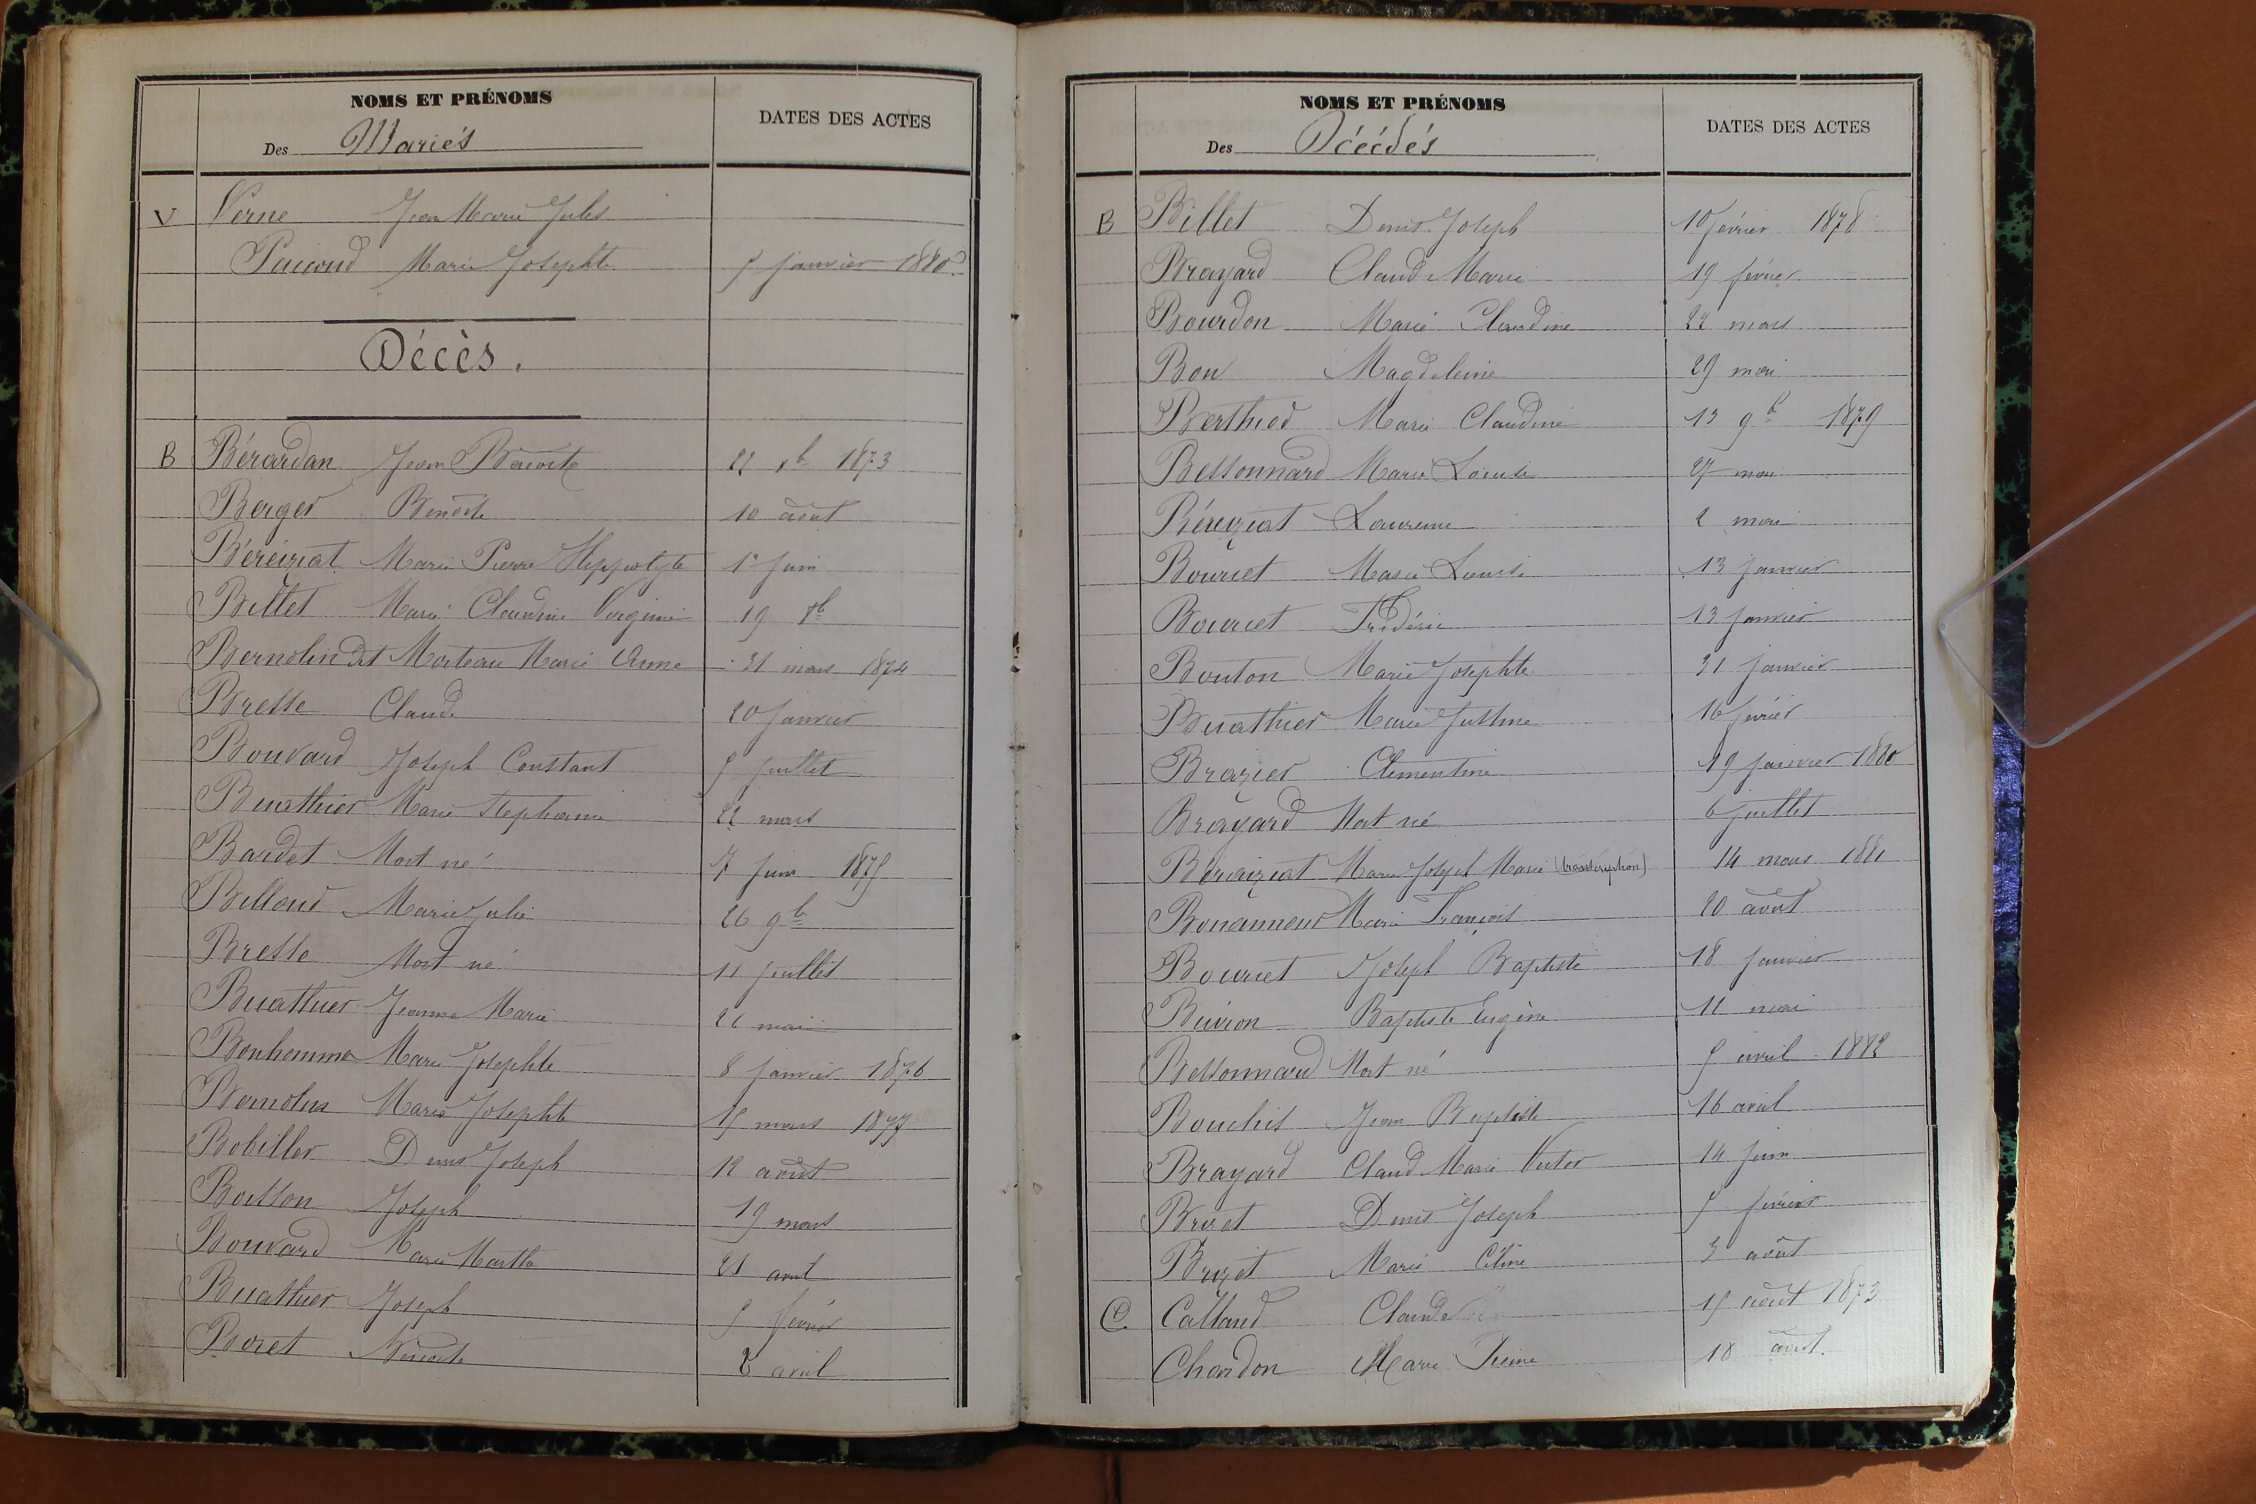 NOMS ET PRÉNOMS
DATES DES ACTES
Des Mariés
V Verne Jean Marie Jules
Marie Josephte 5 janvier 1880
Décès.
B Bérardan Jean Benoite 22 xb 1873
Berger Benoite 10 août
Béréziat Marie Pierre Hyppolyte 1er juin
Billet Marie Claudine Virginie 19 8b
Bernolin dit Morteau Marie Anne 31 mars 1874
Bresse Claude 20 janvier
Bouvard Joseph Constant 5 juillet
Buathier Marie Stephanie 22 mars
Bardet Mort né 7 juin 1875
Billoud Marie Julie 26 9b
Bresse Mort né 11 juillet
Buathier Jeanne Marie 26 mai
Bonhomme Marie Josephte 8 janvier 1876
Bernolin Marie Josephte 15 mars 1877
Bobiller Denis Joseph 12 août
Boisson Joseph 19 mars
Bouvard Marie Marthe 21 avril
Buathier Joseph 5 février
Boret Benoite 2 avril
NOMS ET PRÉNOMS
DATES DES ACTES
Des Décédés
B Billet Denis Joseph 10 février 1878
Brayard Claude Marie 19 février
Bourdon Marie Claudine 22 mars
Bon Magdeleine 29 mai
Berthied Marie Claudine 13 9b 1879
Bessonnard Marie Louise 27 mai
Béréziat Laurence 2 mai
Bourcet Marie Louise 13 janvier
Bourcet Frédéric 13 janvier
Bouton Marie Josephte 31 janvier
Buathier Marie Justine 16 février
Brazier Clementine 19 janvier 1880
Brayard Mort né 6 juillet
Béraiziat Marie Joseph Marie (transcription) 14 mars 1881
Marie François 20 août
Bourcet Joseph Baptiste 18 janvier
Buiron Baptiste Eugène 11 mai
Bessonnard Mort né 5 avril 1882
Bouchis Jean Baptiste 16 avril
Brayard Claude Marie Victor 14 juin
Brizet Denis Joseph 5 février
Brizet Marie Céline 3 août
C Calland Claude 15 août 1873
Chardon Marie 18 août.